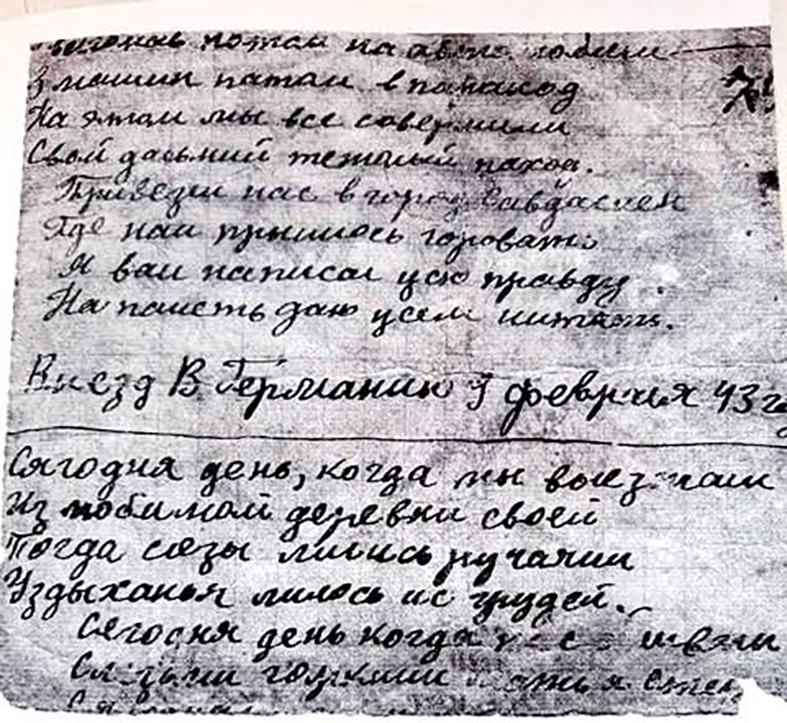 потом на
З машин патом в параход
На этом мы все совершили
Свой дальний тежолый паход.
Привезли нас в город
Где нам прышлось горовать
Я вам написал усю правду
На памсть даю усем читать.
Выезд В Германию 9 февраля 43 г
Сягодня день, когда мы выезжали
Из любимой деревни своей
Тогда слёзы лились ручами
Уздыханья лилось ис грудей.
Сягодня день когда
горкими